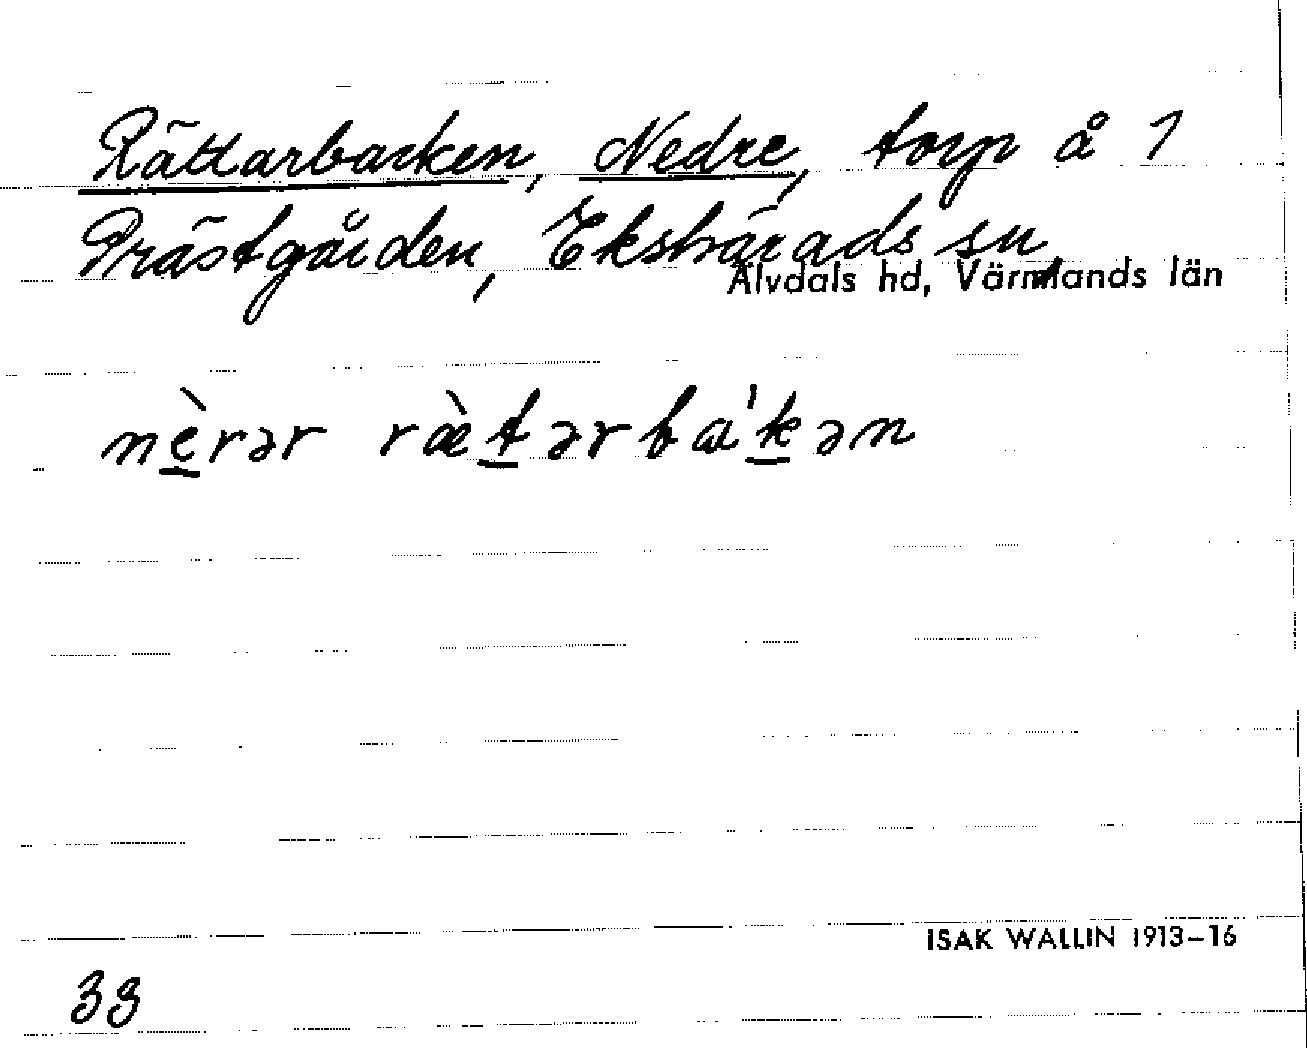 Rättarbacken, Nedre, torp å 1
Prästgården, Ekshärads sn,
Älvdals hd, Värmlands län
nè̱rər ræ̀ṯərbaˈḵən
ISAK WALLIN 1913–16
33